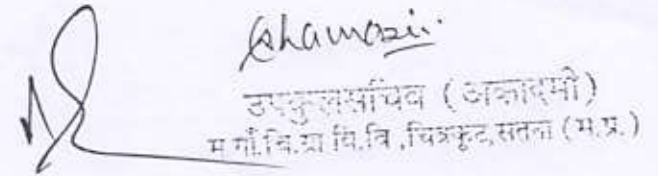 उपकुलसचिव (अकादमी)
म.गाँ.चि.ग्रा.वि.वि.,चित्रकूट,सतना (म.प्र.)